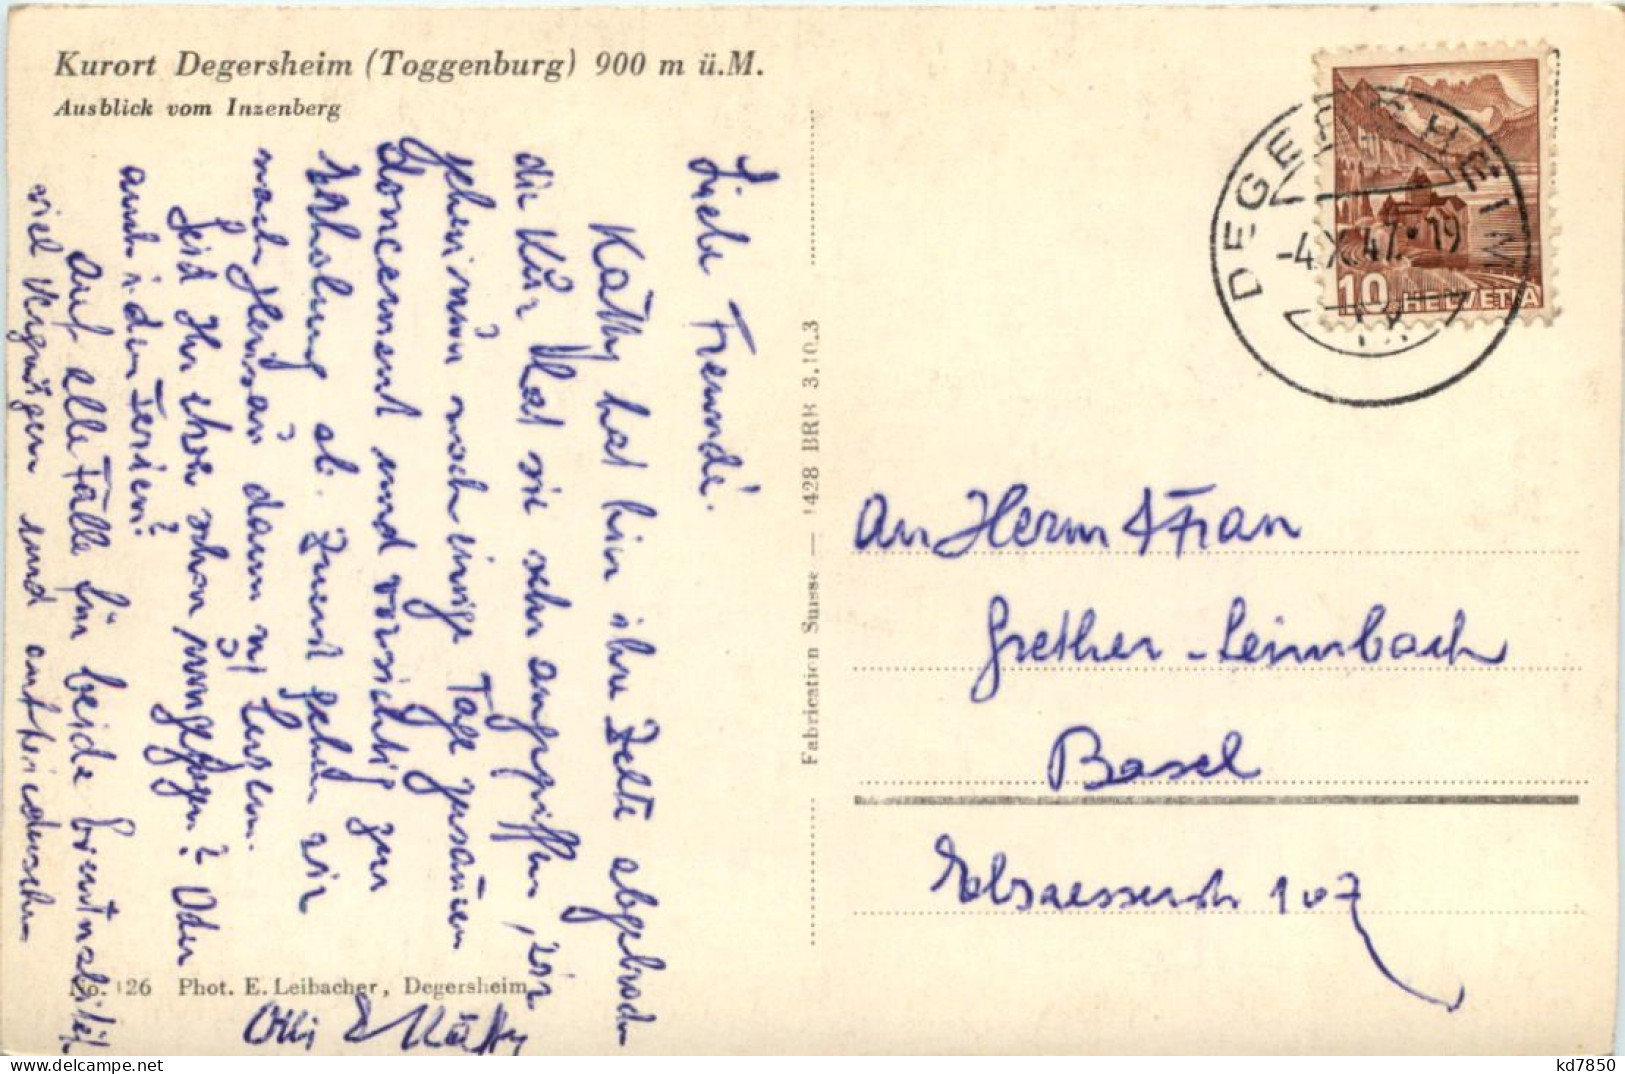 Kurort Degersheim (Toggenburg) 900 m ü.M.
Ausblick vom Inzenberg
Liebe Freunde!
Käthy hat hier ihre Zelte abgebrochen
die Kur hat sie sehr angegriffen, wir
gehen nun noch einige Tage zusammen
und vorsichtig zur
Erholung ab. Zuerst gehen wir
nach dann n/ Luzern.
Seid Ihr schon umgezogen? Oder
auch i. den Ferien?
Auf alle Fälle für beide
viel Vergnügen und auf wiedersehen
& Käthy
No. 126 Phot. E. Leibacher, Degersheim
Fabrication Suisse — 1428 BRB 3.10.3
DEGERSHEIM
-4.X.47.-19
10 HELVETIA
An Herrn & Frau
Grether-Leimbach
Basel
Elsaesserstr 107
kd7850